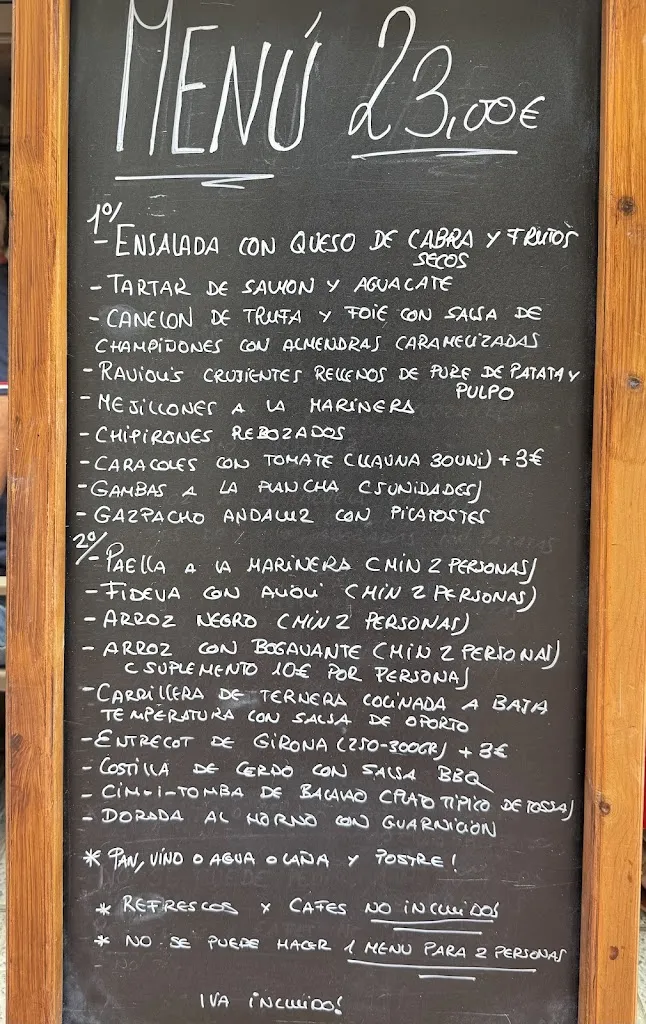 MENÚ 23,00€
1º/
- ENSALADA CON QUESO DE CABRA Y FRUTOS
SECOS
- TARTAR DE SALMON Y AGUACATE
- CANELON DE TRUFA Y FOIE CON SALSA DE
CHAMPIÑONES CON ALMENDRAS CARAMELIZADAS
- RAVIOLIS CRUJIENTES RELLENOS DE PURE DE PATATA Y
PULPO
- MEJILLONES A LA MARINERA
- CHIPIRONES REBOZADOS
- CARACOLES CON TOMATE (LLAUNA 30UNI) + 3€
- GAMBAS A LA PLANCHA (5UNIDADES)
- GAZPACHO ANDALUZ CON PICATOSTES
2º/
- PAELLA A LA MARINERA (MIN 2 PERSONAS)
- FIDEUA CON ALIOLI (MIN 2 PERSONAS)
- ARROZ NEGRO (MIN 2 PERSONAS)
- ARROZ CON BOGAVANTE (MIN 2 PERSONAS)
(SUPLEMENTO 10€ POR PERSONA)
- CARRILLERA DE TERNERA COCINADA A BAJA
TEMPERATURA CON SALSA DE OPORTO
- ENTRECOT DE GIRONA (250-300GR) + 3€
- COSTILLA DE CERDO CON SALSA BBQ
- CIM-I-TOMBA DE BACALAO (PLATO TIPICO DE TOSSA)
- DORADA AL HORNO CON GUARNICION
* PAN, VINO O AGUA O CAÑA Y POSTRE!
* REFRESCOS Y CAFES NO INCLUIDOS
* NO SE PUEDE HACER 1 MENU PARA 2 PERSONAS
IVA INCLUIDO!